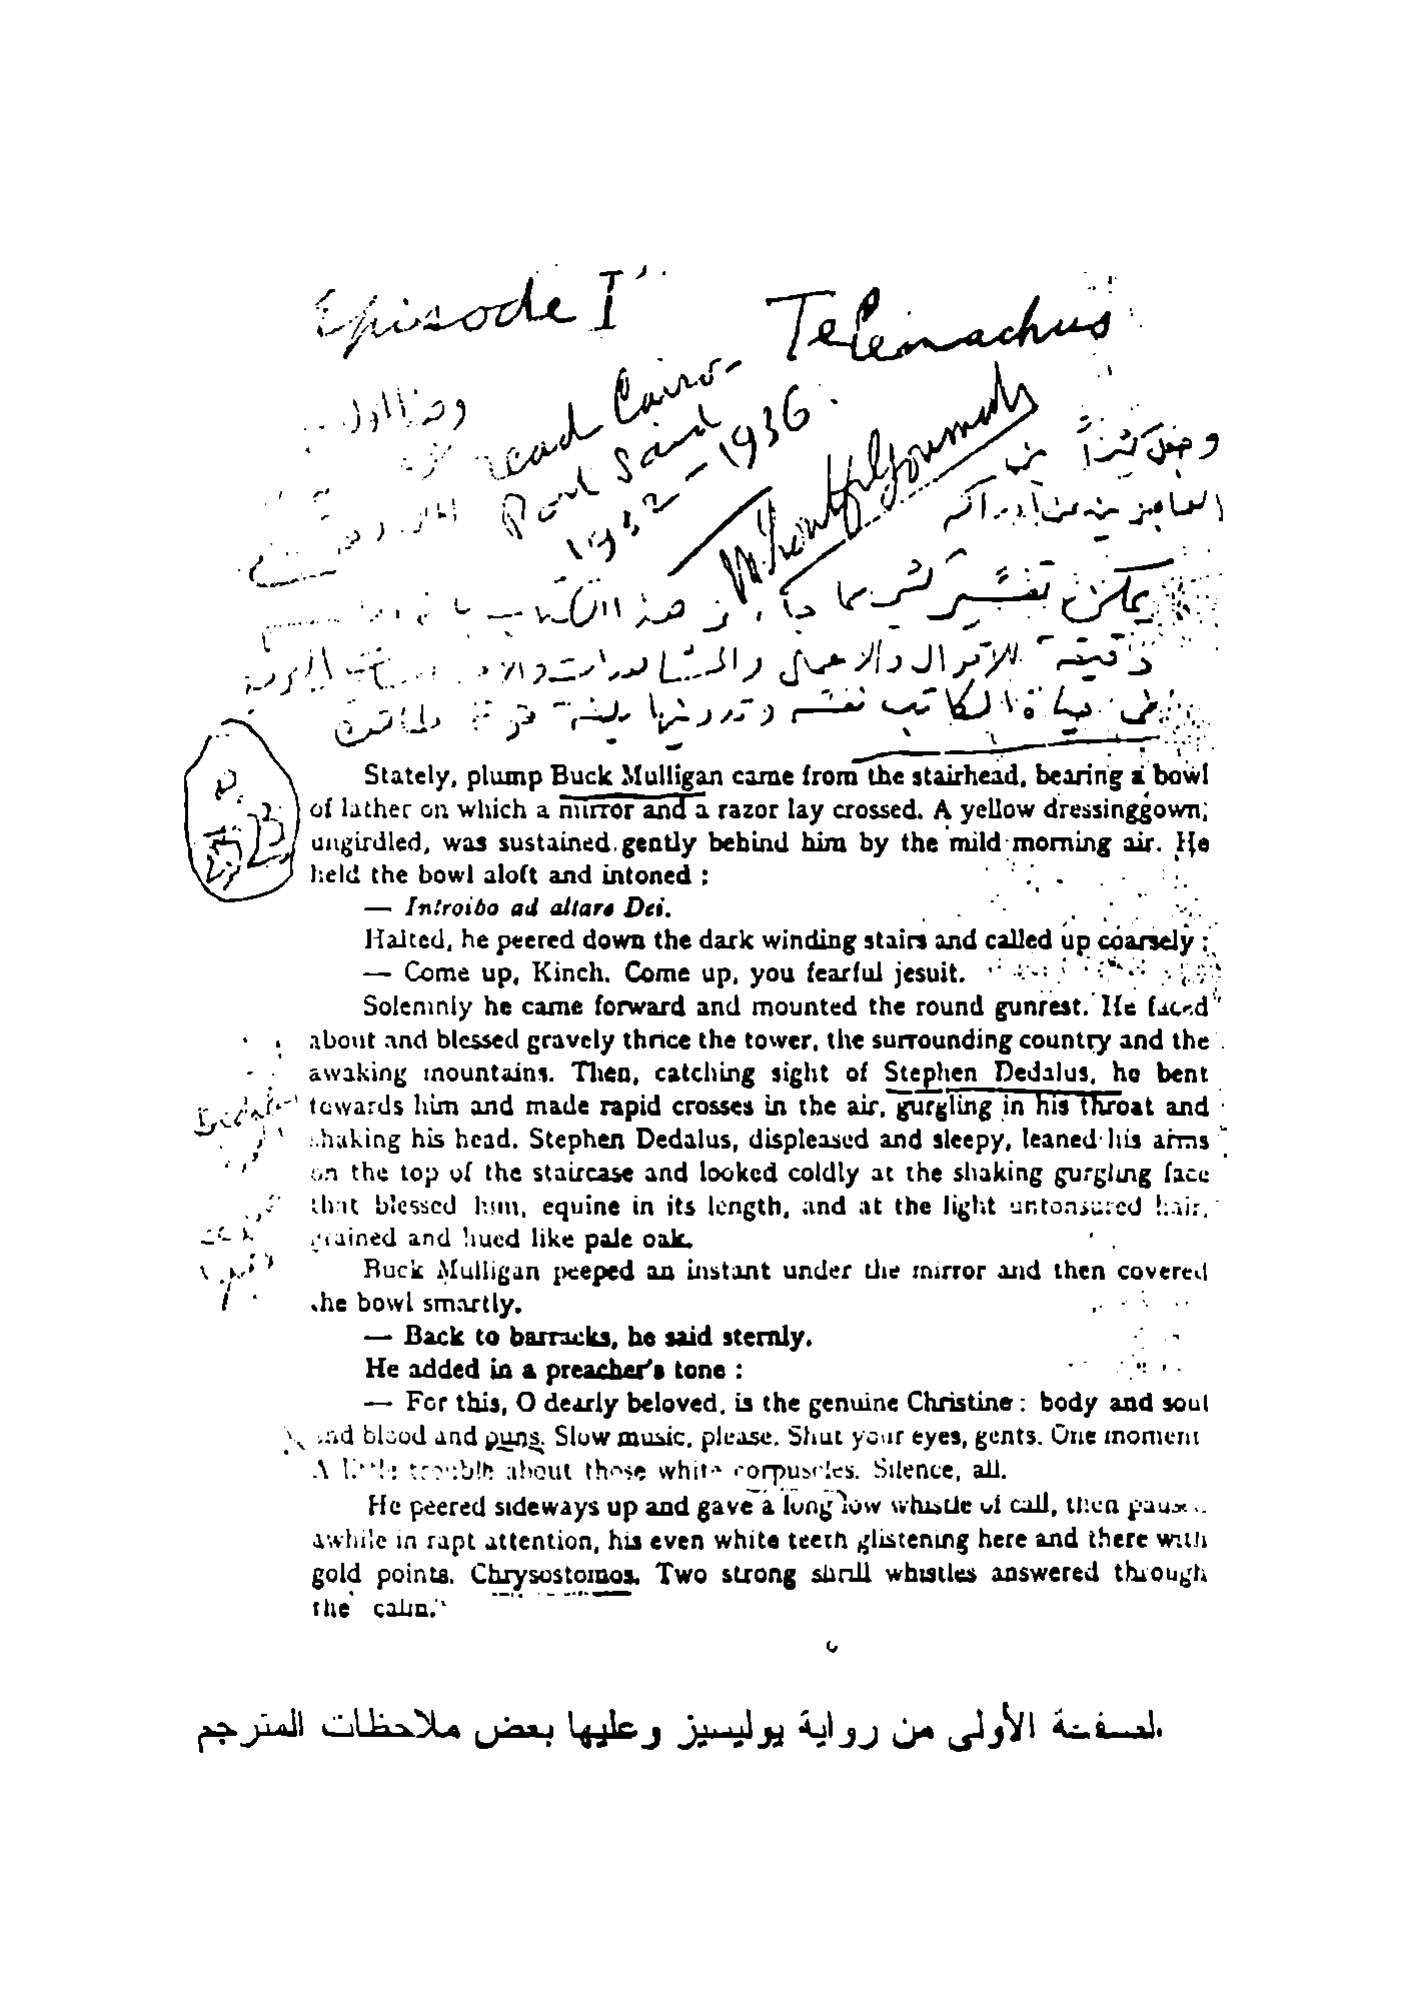 Episode I
Telemachus
read Cairo -
Port Said
1932 - 1936.
وجعل كثيراً من
العاجزين عن إدراكه
يمكن تفسير كثير مما جاء في هذا الكتاب
دقيقة للأقوال والأعمال والمشاهدات
في حياة الكاتب نفسه وتدوينها بلغة
Stately, plump Buck Mulligan came from the stairhead, bearing a bowl
of lather on which a mirror and a razor lay crossed. A yellow dressinggown,
ungirdled, was sustained gently behind him by the mild morning air. He
held the bowl aloft and intoned :
— Introibo ad altare Dei.
Halted, he peered down the dark winding stairs and called up coarsely :
— Come up, Kinch. Come up, you fearful jesuit.
Solemnly he came forward and mounted the round gunrest. He faced
about and blessed gravely thrice the tower, the surrounding country and the
awaking mountains. Then, catching sight of Stephen Dedalus, he bent
towards him and made rapid crosses in the air, gurgling in his throat and
shaking his head. Stephen Dedalus, displeased and sleepy, leaned his arms
on the top of the staircase and looked coldly at the shaking gurgling face
that blessed him, equine in its length, and at the light untonsured hair,
grained and hued like pale oak.
Buck Mulligan peeped an instant under the mirror and then covered
the bowl smartly.
— Back to barracks, he said sternly.
He added in a preacher's tone :
— For this, O dearly beloved, is the genuine Christine : body and soul
and blood and ouns. Slow music, please. Shut your eyes, gents. One moment
A little trouble about those white corpuscles. Silence, all.
He peered sideways up and gave a long low whistle of call, then paused
awhile in rapt attention, his even white teeth glistening here and there with
gold points. Chrysostomos. Two strong shrill whistles answered through
the calm."
الصفحة الأولى من رواية يوليسيز وعليها بعض ملاحظات المترجم